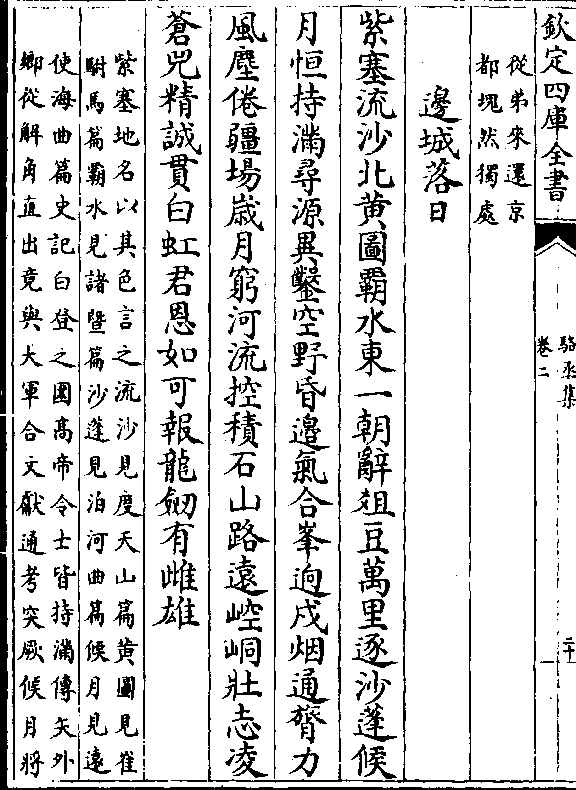 欽定四庫全書
駱丞集
卷二
二十一
從弟來還京
都塊然獨處
邊城落日
紫塞流沙北黄圖覇水東一朝辭爼豆萬里逐沙蓬候
月恒持滿尋源異鑿空野昏邉氣合峯逈戍烟通膂力
風塵倦疆場嵗月窮河流控積石山路遠崆峒壯志凌
蒼兕精誠貫白虹君恩如可報龍劒有雌雄
紫塞地名以其色言之流沙見度天山篇黄圖見崔
駙馬篇覇水見諸暨篇沙蓬見泊河曲篇候月見遠
使海曲篇史記白登之圍髙帝令士皆持滿傳矢外
鄉從解角直出竟與大軍合文獻通考突厥候月將